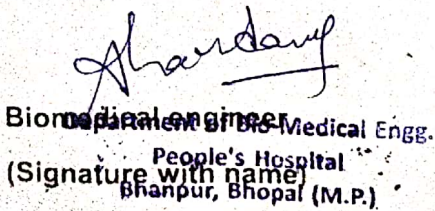 Biomedical engineer
Department of Bio-Medical Engg.
People's Hospital
(Signature with name)
Bhanpur, Bhopal (M.P.)